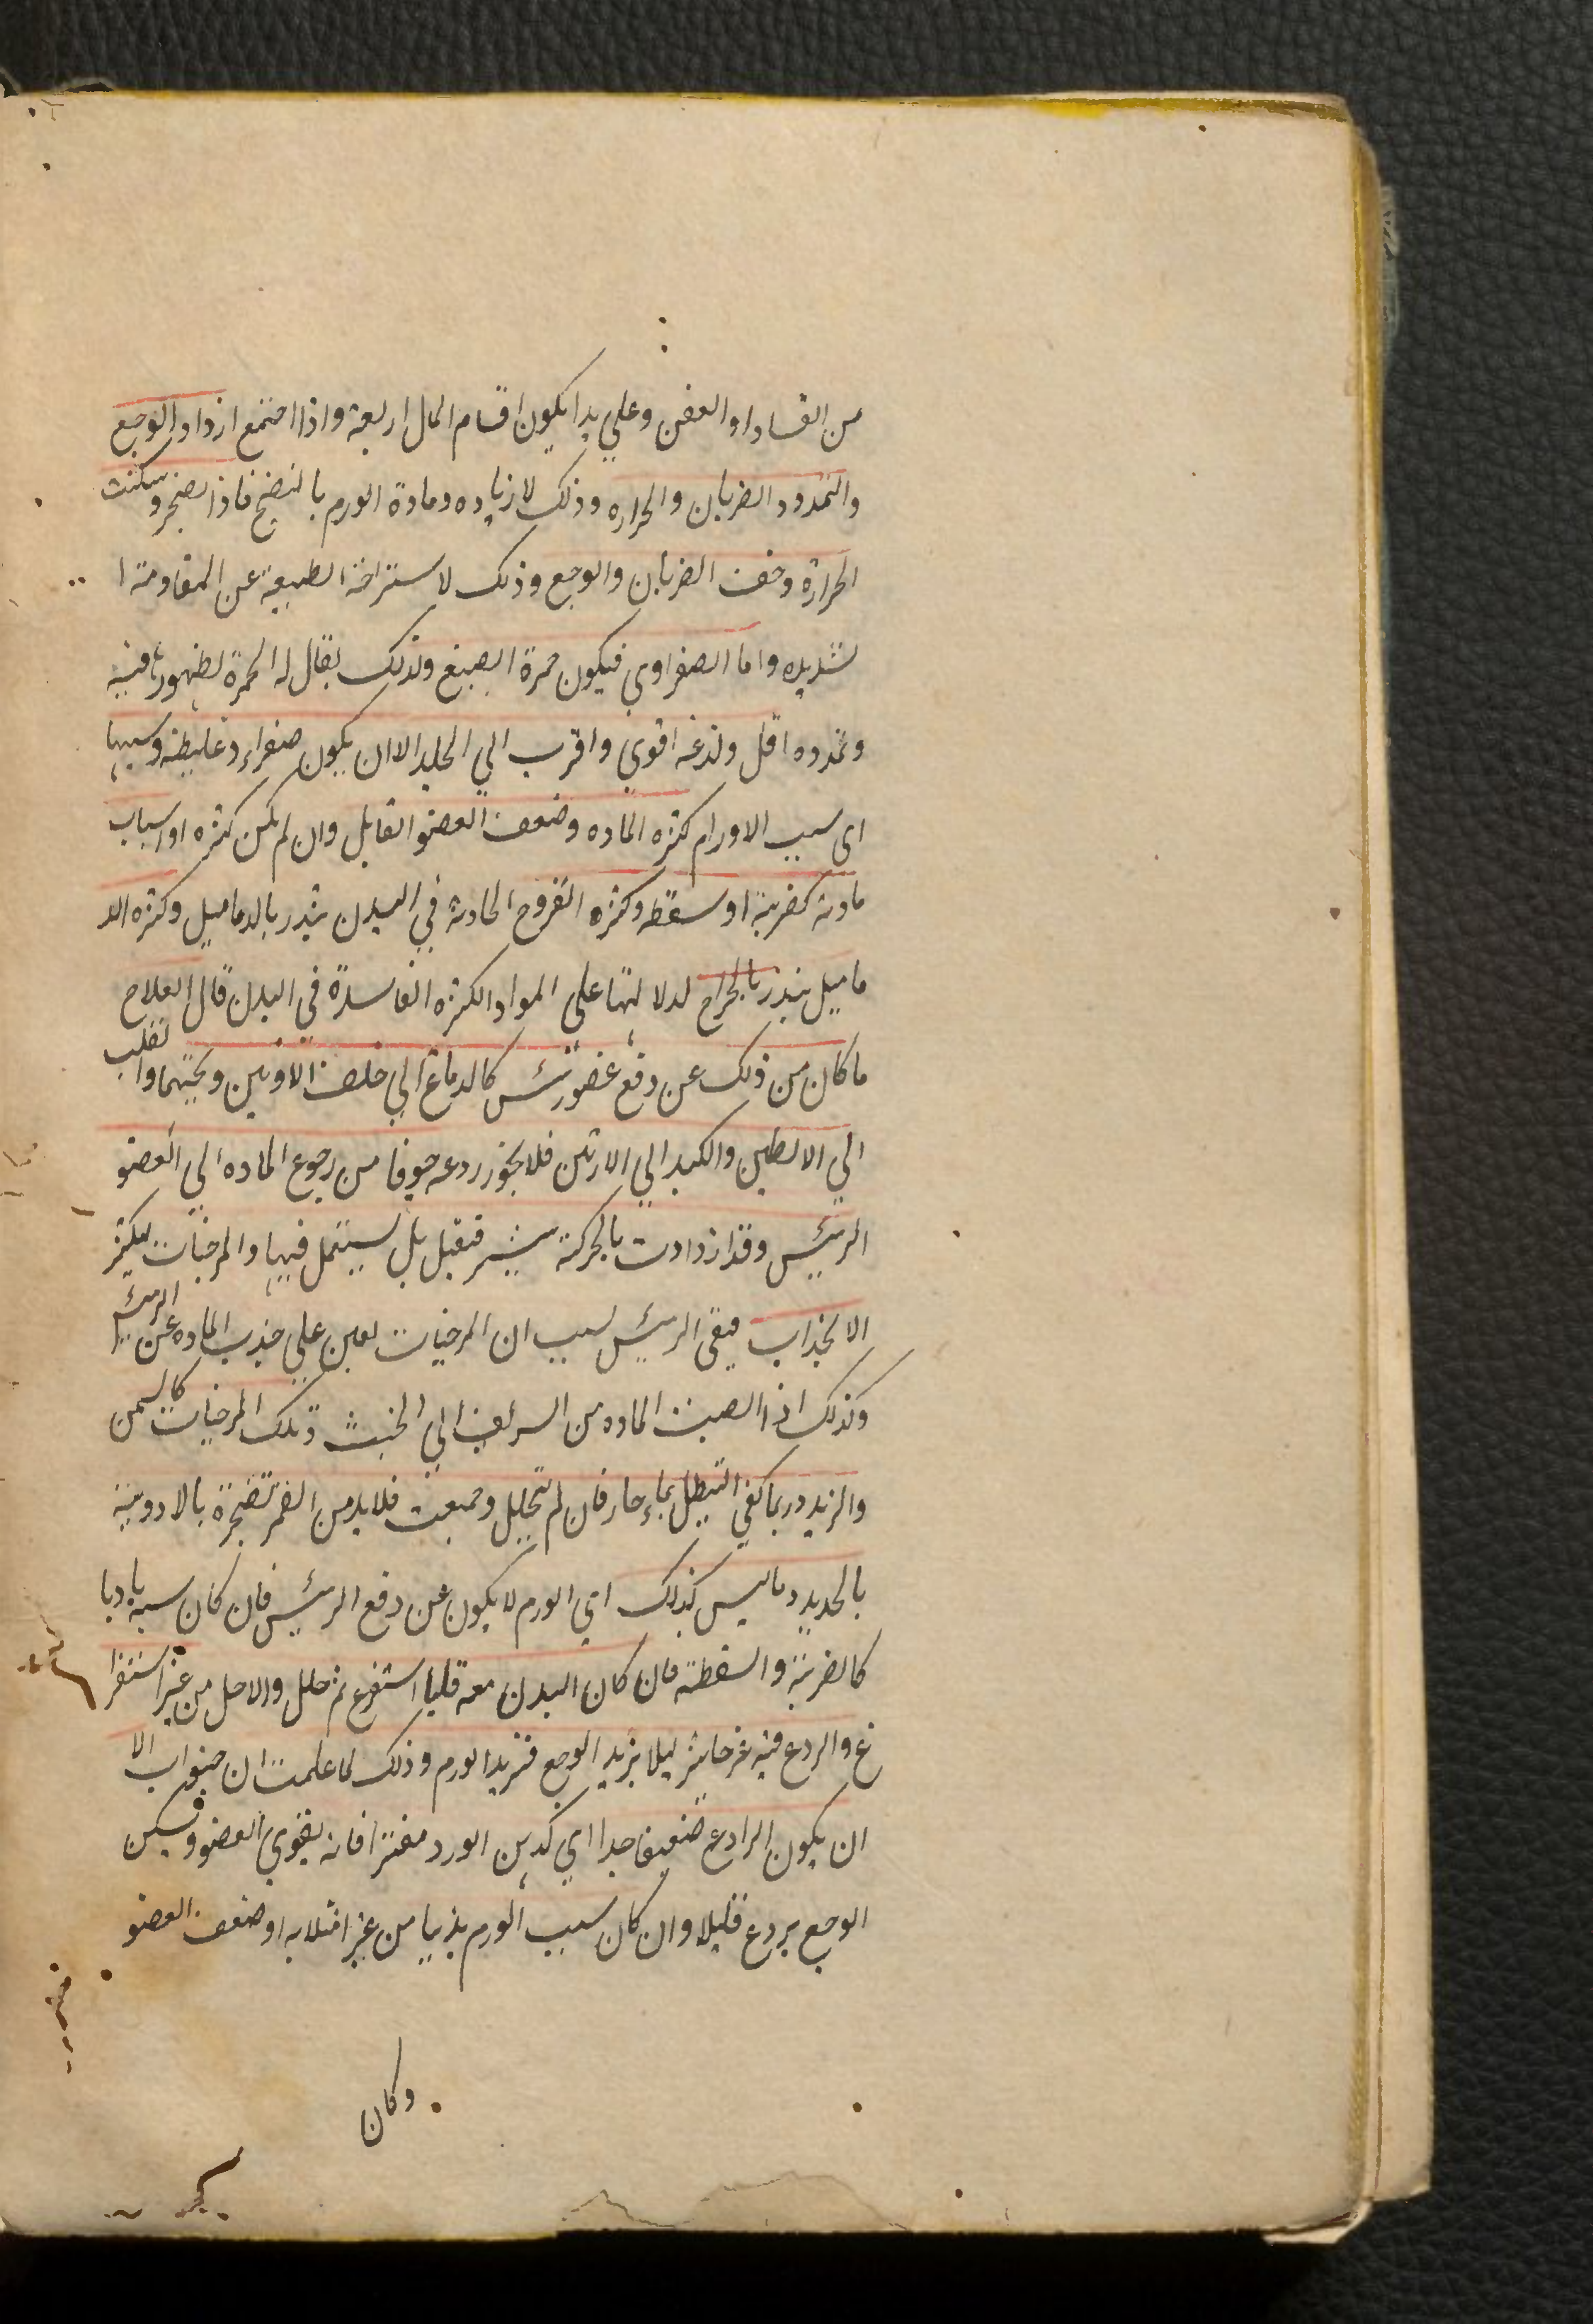 من الفساد او العفن وعلي هذا يكون اقسام المال اربعة واذا اجتمع ازداد الوجع
والتمدد والضربان والحرارة وذلك لازياده ومادة الورم بالنضج فاذا انفجر وسكنت
الحرارة وخفت الضربان والوجع وذلك لاستراحة الطبيعة عن المقاومة ا
لشديده واما الصفراوي فيكون حمرة الصبغ ولذلك يقال له الحمرة لظهورها فيه
وتمدده اقل ولذعه اقوي واقرب الي الجلد الا ان يكون صفراء غليظة وسببها
اى سبب الاورام كثره الماده وضعف العضو القابل وان لم يكن كثره او اسباب
مادية كضربة او سقطه وكثره القروح الحادثة في البدن ينذر بالدماميل وكثره الد
ماميل ينذر بالجراح لدلالتها علي المواد الكثره الفاسدة في البدن قال العلاج
ما كان من ذلك عن دفع عضو رئيس كالدماغ الي خلف الاذنين وتحتهما والقلب
الي الابطين والكبد الي الارنبتين فلا يجوز ردعه خوفا من رجوع الماده الي العضو
الرئيس وقد ازدادت بالحركة فيقبل بل يستعمل فيها والمرخيات ليكثر
الانجذاب فيقى الرئيس لسبب ان المرخيات يعين علي جذب الماده عن الرئيس
وكذلك اذا انصبت الماده من الشريف الي الخسيس وتلك المرخيات كالسمن
والزبد وربما كفي التنطيل بماء حار فان لم يتحلل وجمعت فلا بد من تفجره بالادوية
بالحديد وما ليس كذلك اي الورم لا يكون عن دفع الرئيس فان كان سببه باديا
كالضربة والسقطة فان كان البدن معه استفرغ ثم حلل والا حل من غير استفرا
غ والردع فيه غير جايز ليلا يزيد الوجع فيزيد الورم وذلك لما علمت ان الا
ان يكون الرادع ضعيفا جدا اي كدهن الورد مفترا فانه يقوي العضو ويسكن
الوجع بردع قليلا وان كان سبب الورم بدنيا من غير امتلاء به او ضعف العضو
وكان